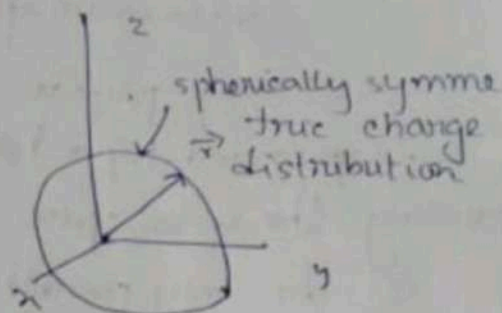 z
spherically symme
true charge
r⃗
distribution
y
x